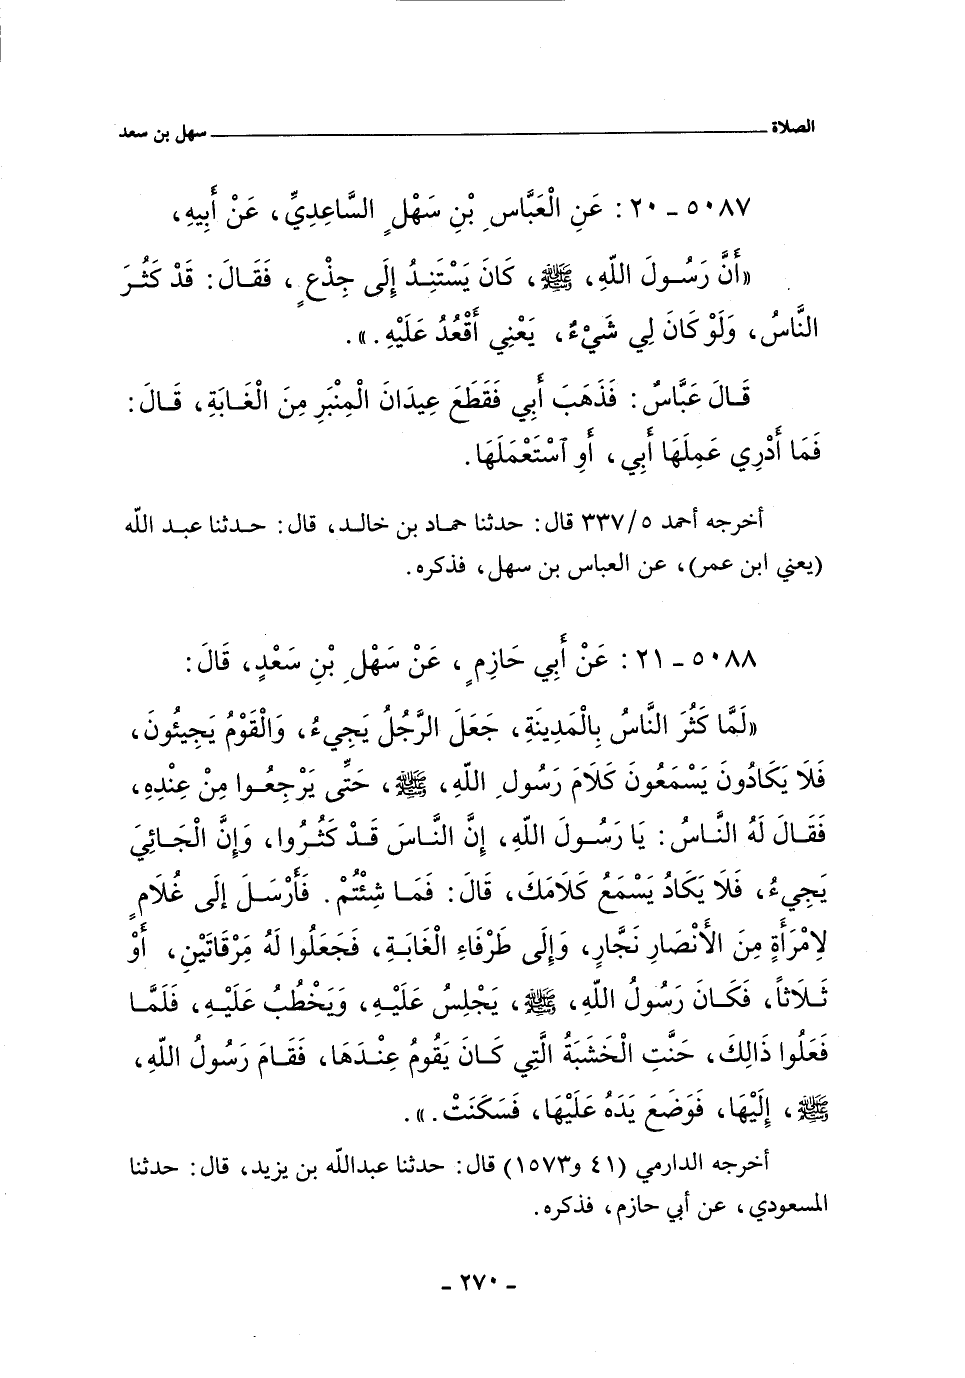 الصلاة ــــــــــــــــــــ سهل بن سعد
٥٠٨٧ ـ ٢٠ : عَنِ الْعَبَّاسِ بْنِ سَهْلٍ السَّاعِدِيِّ، عَنْ أَبِيهِ،
«أَنَّ رَسُولَ اللهِ، ﷺ، كَانَ يَسْتَنِدُ إِلَى جِذْعٍ، فَقَالَ : قَدْ كَثُرَ
النَّاسُ، وَلَوْ كَانَ لِي شَيْءٌ، يَعْنِي أَقْعُدُ عَلَيْهِ.».
قَالَ عَبَّاسٌ : فَذَهَبَ أَبِي فَقَطَعَ عِيدَانَ الْمِنْبَرِ مِنَ الْغَابَةِ، قَالَ :
فَمَا أَدْرِي عَمِلَهَا أَبِي، أَوِ ٱسْتَعْمَلَهَا.
أخرجه أحمد ٣٣٧/٥ قال : حدثنا حماد بن خالد، قال : حدثنا عبد الله
(يعني ابن عمر)، عن العباس بن سهل، فذكره.
٥٠٨٨ ـ ٢١ : عَنْ أَبِي حَازِمٍ، عَنْ سَهْلِ بْنِ سَعْدٍ، قَالَ :
«لَمَّا كَثُرَ النَّاسُ بِالْمَدِينَةِ، جَعَلَ الرَّجُلُ يَجِيءُ، وَالْقَوْمُ يَجِيئُونَ،
فَلَا يَكَادُونَ يَسْمَعُونَ كَلَامَ رَسُولِ اللهِ، ﷺ، حَتَّى يَرْجِعُوا مِنْ عِنْدِهِ،
فَقَالَ لَهُ النَّاسُ : يَا رَسُولَ اللهِ، إِنَّ النَّاسَ قَدْ كَثُرُوا، وَإِنَّ الْجَائِيَ
يَجِيءُ، فَلَا يَكَادُ يَسْمَعُ كَلَامَكَ، قَالَ : فَمَا شِئْتُمْ. فَأَرْسَلَ إِلَى غُلَامٍ
لِامْرَأَةٍ مِنَ الْأَنْصَارِ نَجَّارٍ، وَإِلَى طَرْفَاءِ الْغَابَةِ، فَجَعَلُوا لَهُ مِرْقَاتَيْنِ، أَوْ
ثَلَاثاً، فَكَانَ رَسُولُ اللهِ، ﷺ، يَجْلِسُ عَلَيْهِ، وَيَخْطُبُ عَلَيْهِ، فَلَمَّا
فَعَلُوا ذَالِكَ، حَنَّتِ الْخَشَبَةُ الَّتِي كَانَ يَقُومُ عِنْدَهَا، فَقَامَ رَسُولُ اللهِ،
ﷺ، إِلَيْهَا، فَوَضَعَ يَدَهُ عَلَيْهَا، فَسَكَنَتْ.».
أخرجه الدارمي (٤١ و١٥٧٣) قال : حدثنا عبدالله بن يزيد، قال : حدثنا
المسعودي، عن أبي حازم، فذكره.
ـ ٢٧٠ ـ